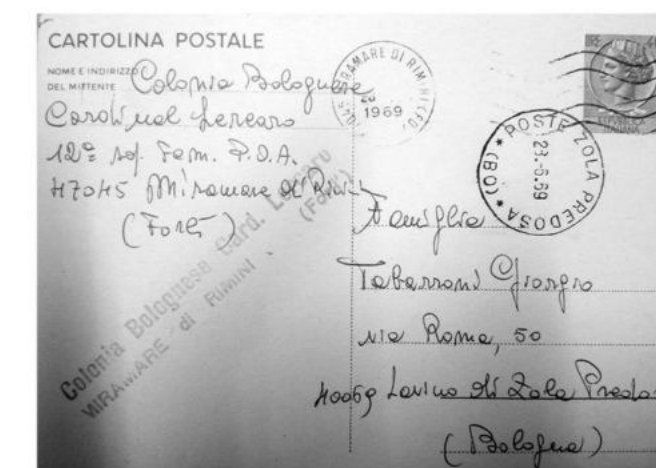 CARTOLINA POSTALE
NOME E INDIRIZZO
DEL MITTENTE
Colonia Bolognese
Cardinal Lercaro
12ª Fem. P.O.A.
47045 Miramare di
(Forlì)
Colonia Bolognese Card. Lercaro
MIRAMARE di RIMINI (Forlì)
MIRAMARE DI RIMINI (FO)
1969
POSTE ZOLA PREDOSA * (BO) *
23.-6.69
Famiglia
Tabarroni Giorgio
via Roma, 50
40069 Lavino di Zola Predos
(Bologna)